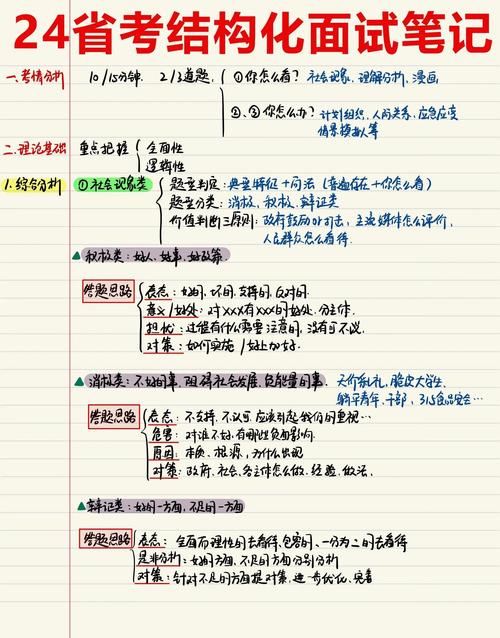 24省考结构化面试笔记
一、考情分析 10/15分钟. 2/3道题. ①你怎么看? 社会现象, 理解分析, 漫画
②、③你怎么办? 计划组织, 人际关系, 应急应变
情景模拟等
二、理论基础 重点把握 全面性
逻辑性
1.综合分析 ①社会现象类 题型判定: 典型特征+问法(普遍存在+你怎么看)
题型分类: 消极, 积极, 辩证类
价值判断三原则: 政府鼓励or打击, 主流媒体怎么评价,
人民群众怎么看待.
▲积极类: 好人, 好事, 好政策.
答题思路 表态: 好的, 坏的, 支持的, 反对的.
意义/好处: 对XXX有XXX的好处. 分主体.
担忧: 过程有什么需要注意的, 没有可不说.
对策: 如何实施/好上加好.
▲消极类: 不好的事, 阻碍社会发展, 负能量的事. 天价彩礼, 脆皮大学生.
躺平青年、干部, 315食品安全…
答题思路 表态: 不支持, 不认可, 应该引起我们的重视…
危害: 对谁不好, 有哪些负面影响.
原因: 本质、根源, 为什么出现
对策: 政府, 社会, 各主体怎么做. 经验, 做法.
▲辩证类: 好的一方面, 不足的一方面
答题思路 表态: 全面而理性的去看待, 包容的、一分为二的去看待
是非分析: 好的方面, 不足的方面分别分析
对策: 针对不足的方面提对策, 进一步优化、完善